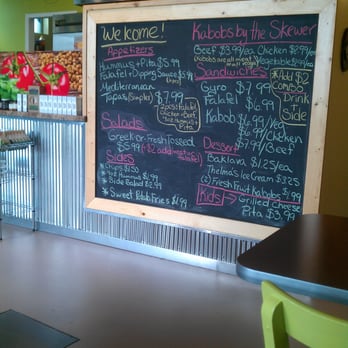 Welcome!
Appetizers
Hummus + Pita $5.99
Falafel + Dipping Sauce $5.99
Mediterranean
Tapas (Simpler) $7.99
2 pcs falafel
Chicken + Beef
Pita
Salads
Greek or Fresh Tossed
$5.99 (+$2 add meat or falafel)
Sides
* Chips $1.50
* Side Salad $2.99
* Sweet Potato Fries $4.99
Kabobs by the Skewer
Beef $3.99/ea Chicken $2.99/ea
(Kabobs are all meat) Vegetable $1.99/ea
Sandwiches
Gyro $7.99
Falafel $6.99
Kabob $6.99/Veg
$6.99/Chicken
$7.99/Beef
* Add $2
COMBO
Drink
Side
Dessert
Baklava $1.25/ea
Thelma's Ice Cream $3.25
Fresh Fruit Kabobs
Kids → Grilled Cheese
Pita $3.99